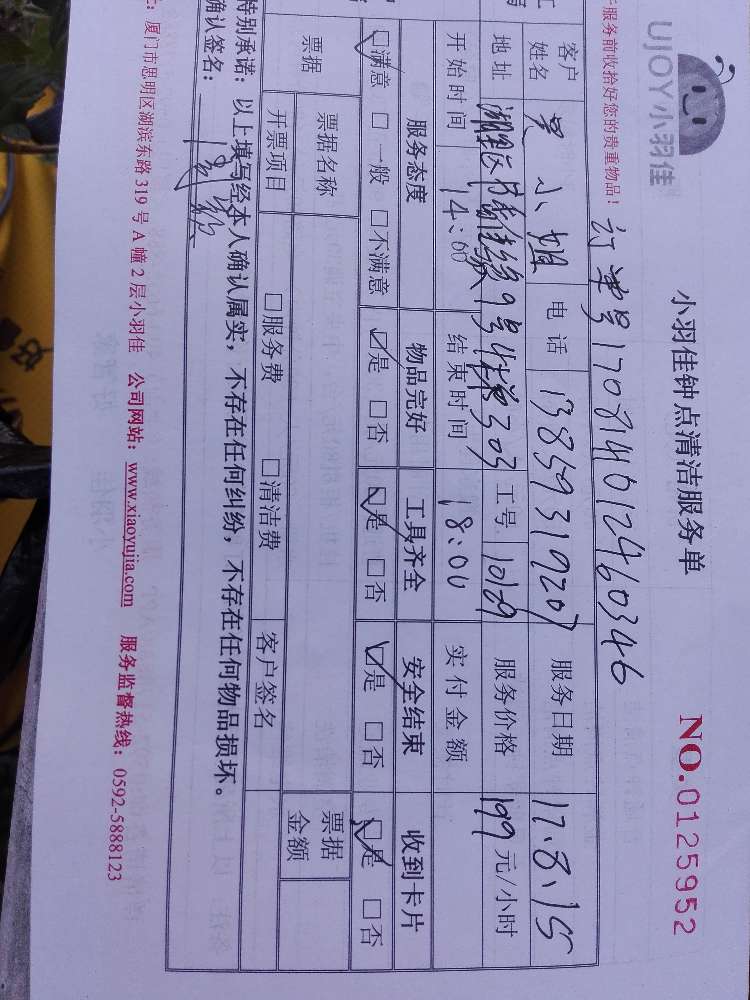 UJOY小羽佳
小羽佳钟点清洁服务单
NO.0125952
服务前收拾好您的贵重物品！
订单号170814012460346
客户姓名 吴小姐 电话 13859931920 服务日期 17.8.15
地址 湖里区 9号 303 工号 10129 服务价格 199元/小时
开始时间 14:00 结束时间 18:00 实付金额
服务态度 物品完好 工具齐全 安全结束 收到卡片
☑满意 □一般 □不满意 ☑是 □否 ☑是 □否 ☑是 □否 ☑是 □否
票据 票据名称 票据金额
开票项目 □服务费 □清洁费 客户签名
特别承诺：以上填写经本人确认属实，不存在任何纠纷，不存在任何物品损坏。
确认签名：
厦门市思明区湖滨东路319号A幢2层小羽佳 公司网站：www.xiaoyujia.com 服务监督热线：0592-5888123